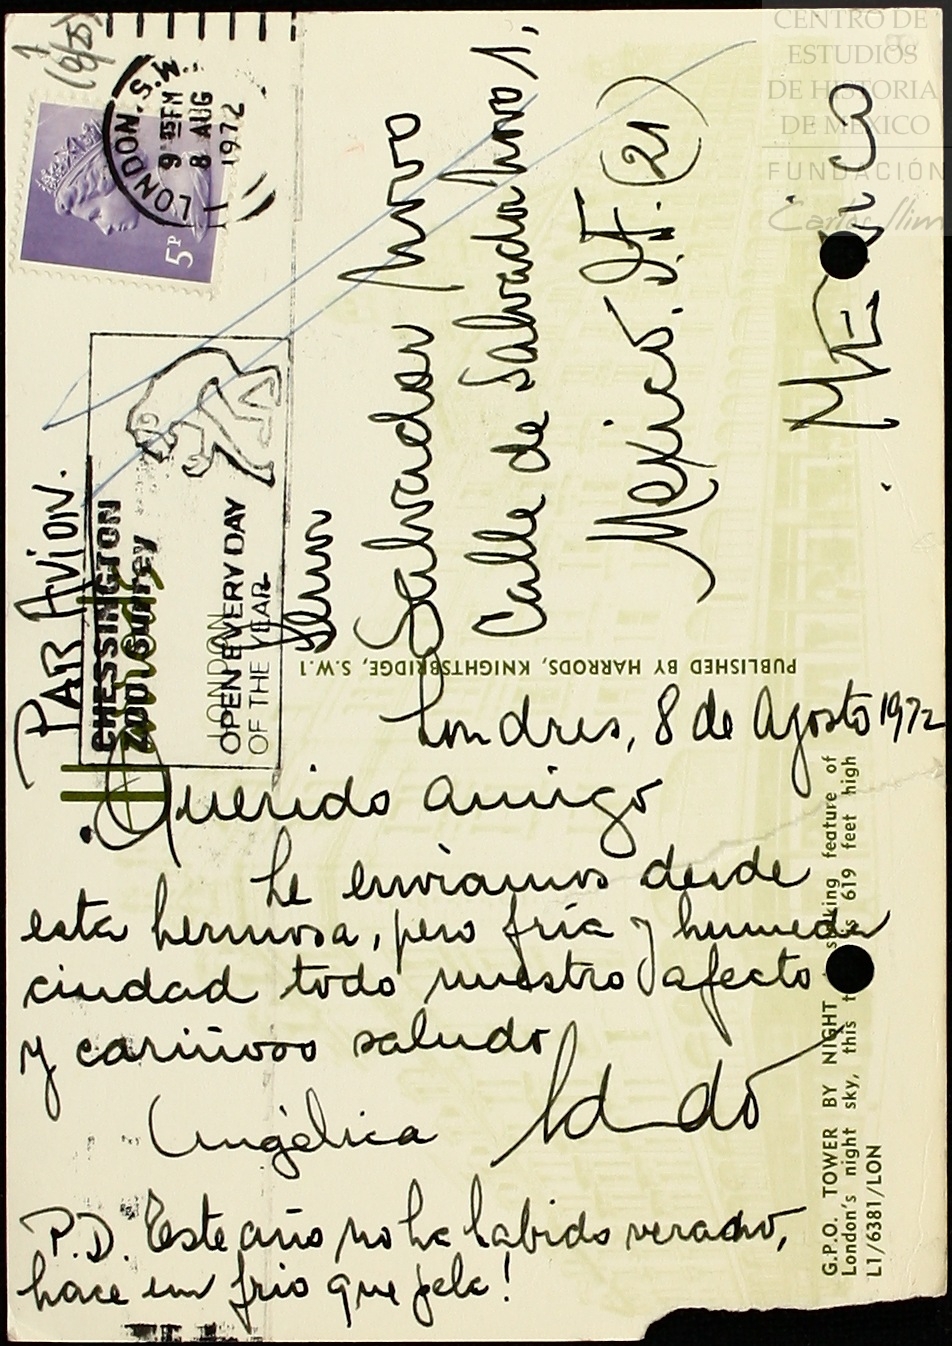 Londres, 8 de Agosto 1972
Querido amigo
te enviamos desde
esta hermosa, pero fría y humeda
ciudad todo nuestro afecto
y cariñoso saludo
Angélica
P.D. Este año no ha habido verano,
hace un frio que pela!
PAR AVION.
Salvador Novo
Calle de Salvador Novo 1,
Mexico. D.F. (21)
MEXICO
LONDON. S.W.
9 PM
8 AUG
1972
5P
CHESSINGTON
ZOO. Surrey
OPEN EVERY DAY
OF THE YEAR
PUBLISHED BY HARRODS, KNIGHTSBRIDGE, S.W.1
G.P.O. TOWER BY NIGHT feature of
London's night sky, this 619 feet high
L1/6381/LON
CENTRO DE
ESTUDIOS
DE HISTORIA
DE MEXICO
FUNDACIÓN
Carlos Slim